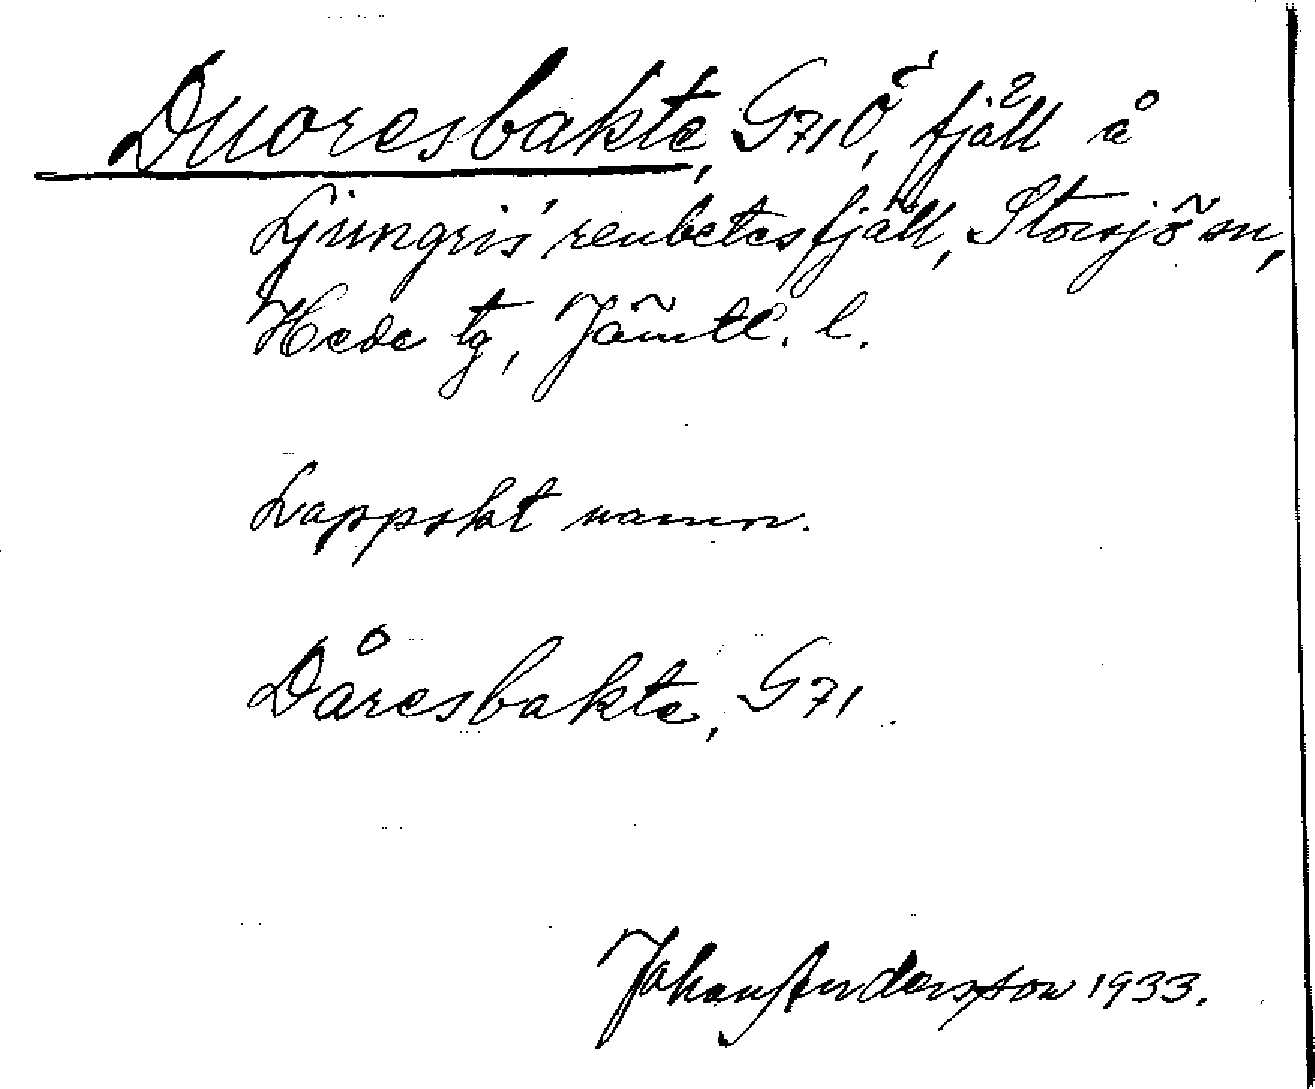 Duoresbakte, G71Ö, fjäll å
Ljungris' renbetesfjäll, Storsjö sn,
Hede tg, Jämtl. l.
Lappskt namn.
Dåresbakte, G71.
Johan Andersson 1933.